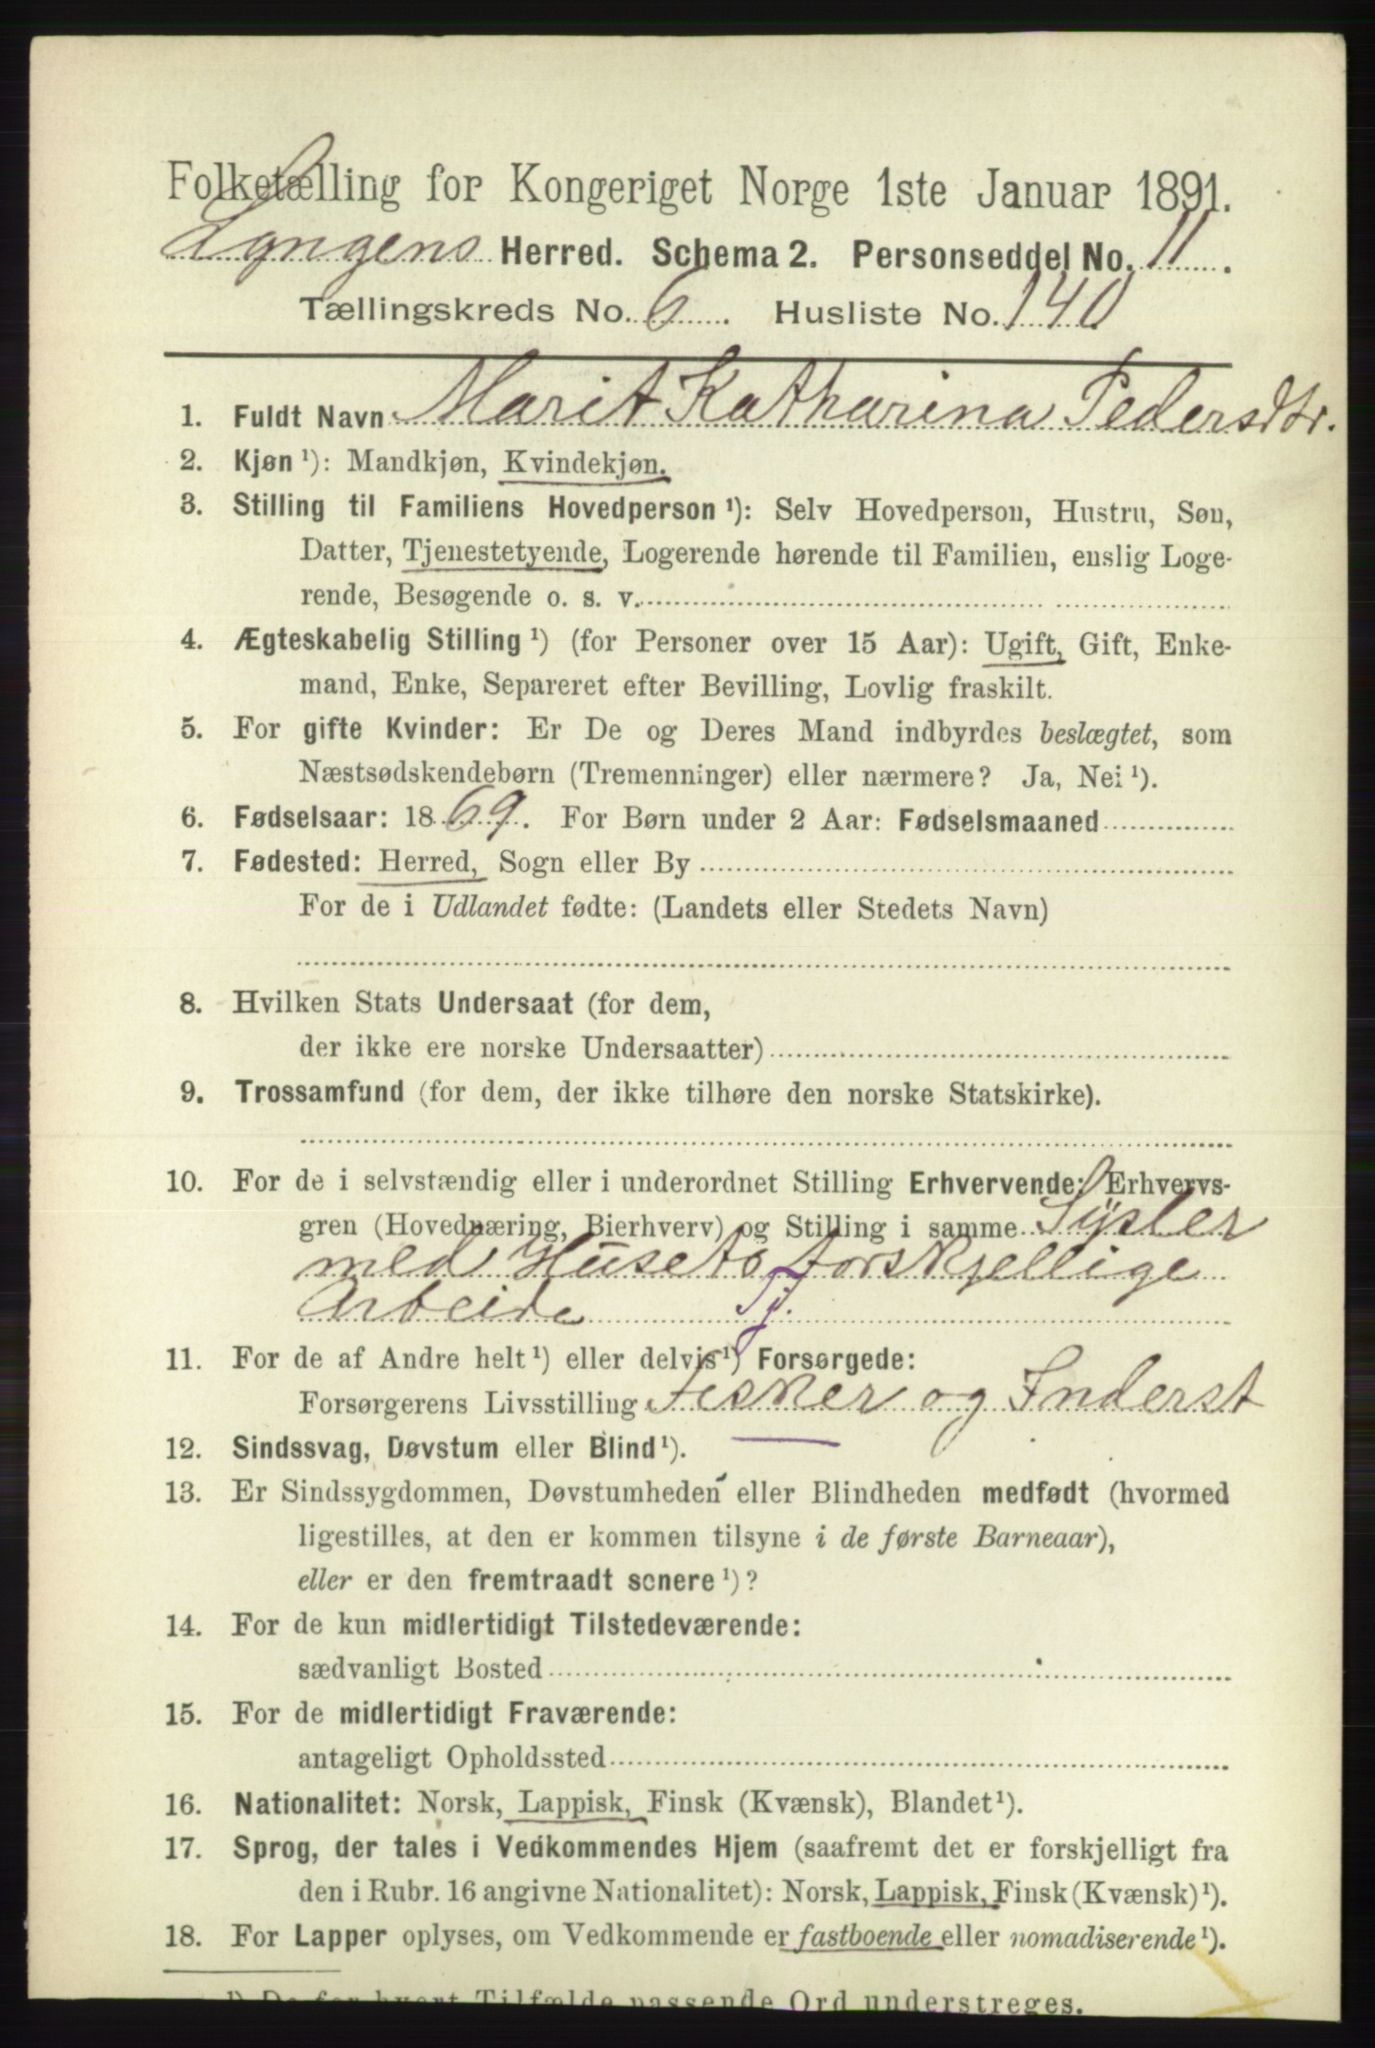 Folketælling for Kongeriget Norge 1ste Januar 1891.
Lyngens Herred. Schema 2. Personseddel No. 11.
Tællingskreds No. 6. Husliste No. 140
1. Fuldt Navn Marit Katharina Pedersdtr.
2. Kjøn ¹): Mandkjøn, Kvindekjøn.
3. Stilling til Familiens Hovedperson ¹): Selv Hovedperson, Hustru, Søn,
Datter, Tjenestetyende, Logerende hørende til Familien, enslig Loge-
rende, Besøgende o. s. v.
4. Ægteskabelig Stilling ¹) (for Personer over 15 Aar): Ugift, Gift, Enke-
mand, Enke, Separeret efter Bevilling, Lovlig fraskilt.
5. For gifte Kvinder: Er De og Deres Mand indbyrdes beslægtet, som
Næstsødskendebørn (Tremenninger) eller nærmere? Ja, Nei ¹).
6. Fødselsaar: 1869. For Børn under 2 Aar: Fødselsmaaned
7. Fødested: Herred, Sogn eller By
For de i Udlandet fødte: (Landets eller Stedets Navn)
8. Hvilken Stats Undersaat (for dem,
der ikke ere norske Undersaatter)
9. Trossamfund (for dem, der ikke tilhøre den norske Statskirke).
10. For de i selvstændig eller i underordnet Stilling Erhvervende: Erhvervs-
gren (Hovednæring, Bierhverv) og Stilling i samme Sysler
med Husets forskjellige
Arbeide Tj.
11. For de af Andre helt ¹) eller delvis ¹) Forsørgede:
Forsørgerens Livsstilling Fisker og Inderst
12. Sindssvag, Døvstum eller Blind ¹).
13. Er Sindssygdommen, Døvstumheden eller Blindheden medfødt (hvormed
ligestilles, at den er kommen tilsyne i de første Barneaar),
eller er den fremtraadt senere ¹)?
14. For de kun midlertidigt Tilstedeværende:
sædvanligt Bosted
15. For de midlertidigt Fraværende:
antageligt Opholdssted
16. Nationalitet: Norsk, Lappisk, Finsk (Kvænsk), Blandet ¹).
17. Sprog, der tales i Vedkommendes Hjem (saafremt det er forskjelligt fra
den i Rubr. 16 angivne Nationalitet): Norsk, Lappisk, Finsk (Kvænsk) ¹).
18. For Lapper oplyses, om Vedkommende er fastboende eller nomadiserende ¹).
¹) De for hvert Tilfælde passende Ord understreges.